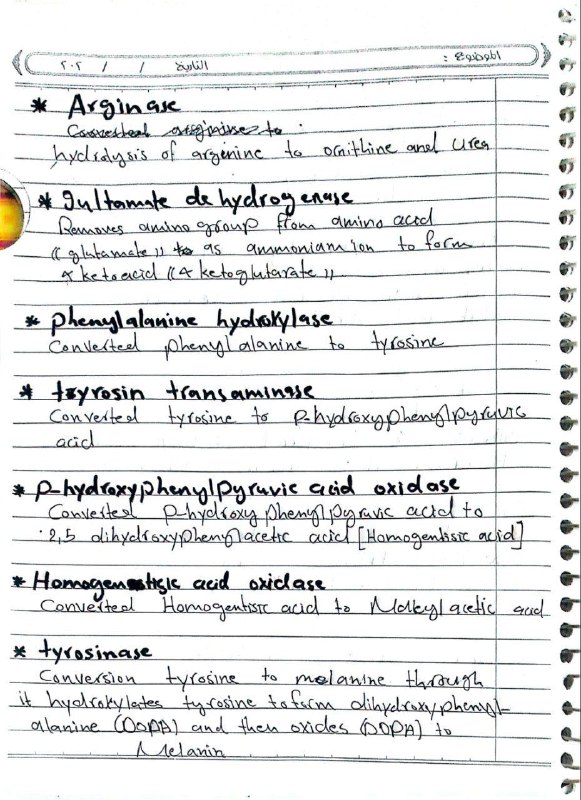 الموضوع : التاريخ / / ٢٠٢
* Arginase
Converted arginine to
hydrolysis of argenine to ornithine and urea
* Glutamate dehydrogenase
Removes amino group from amino acid
(( glutamate )) to as ammoniam ion to form
α ketoacid (( α ketoglutarate ))
* phenylalanine hydroxylase
Converted phenylalanine to tyrosine
* tyrosin transaminase
Converted tyrosine to p-hydroxyphenylpyruvic
acid
* p-hydroxyphenylpyruvic acid oxidase
Converted p-hydroxyphenylpyruvic acid to
2,5 dihydroxyphenylacetic acid [Homogentisic acid]
* Homogenetisic acid oxidase
Converted Homogentisic acid to Maleylacetic acid
* tyrosinase
Conversion tyrosine to melanine through
it hydroxylates tyrosine to form dihydroxyphenyl-
alanine (DOPA) and then oxides (DOPA) to
Melanin